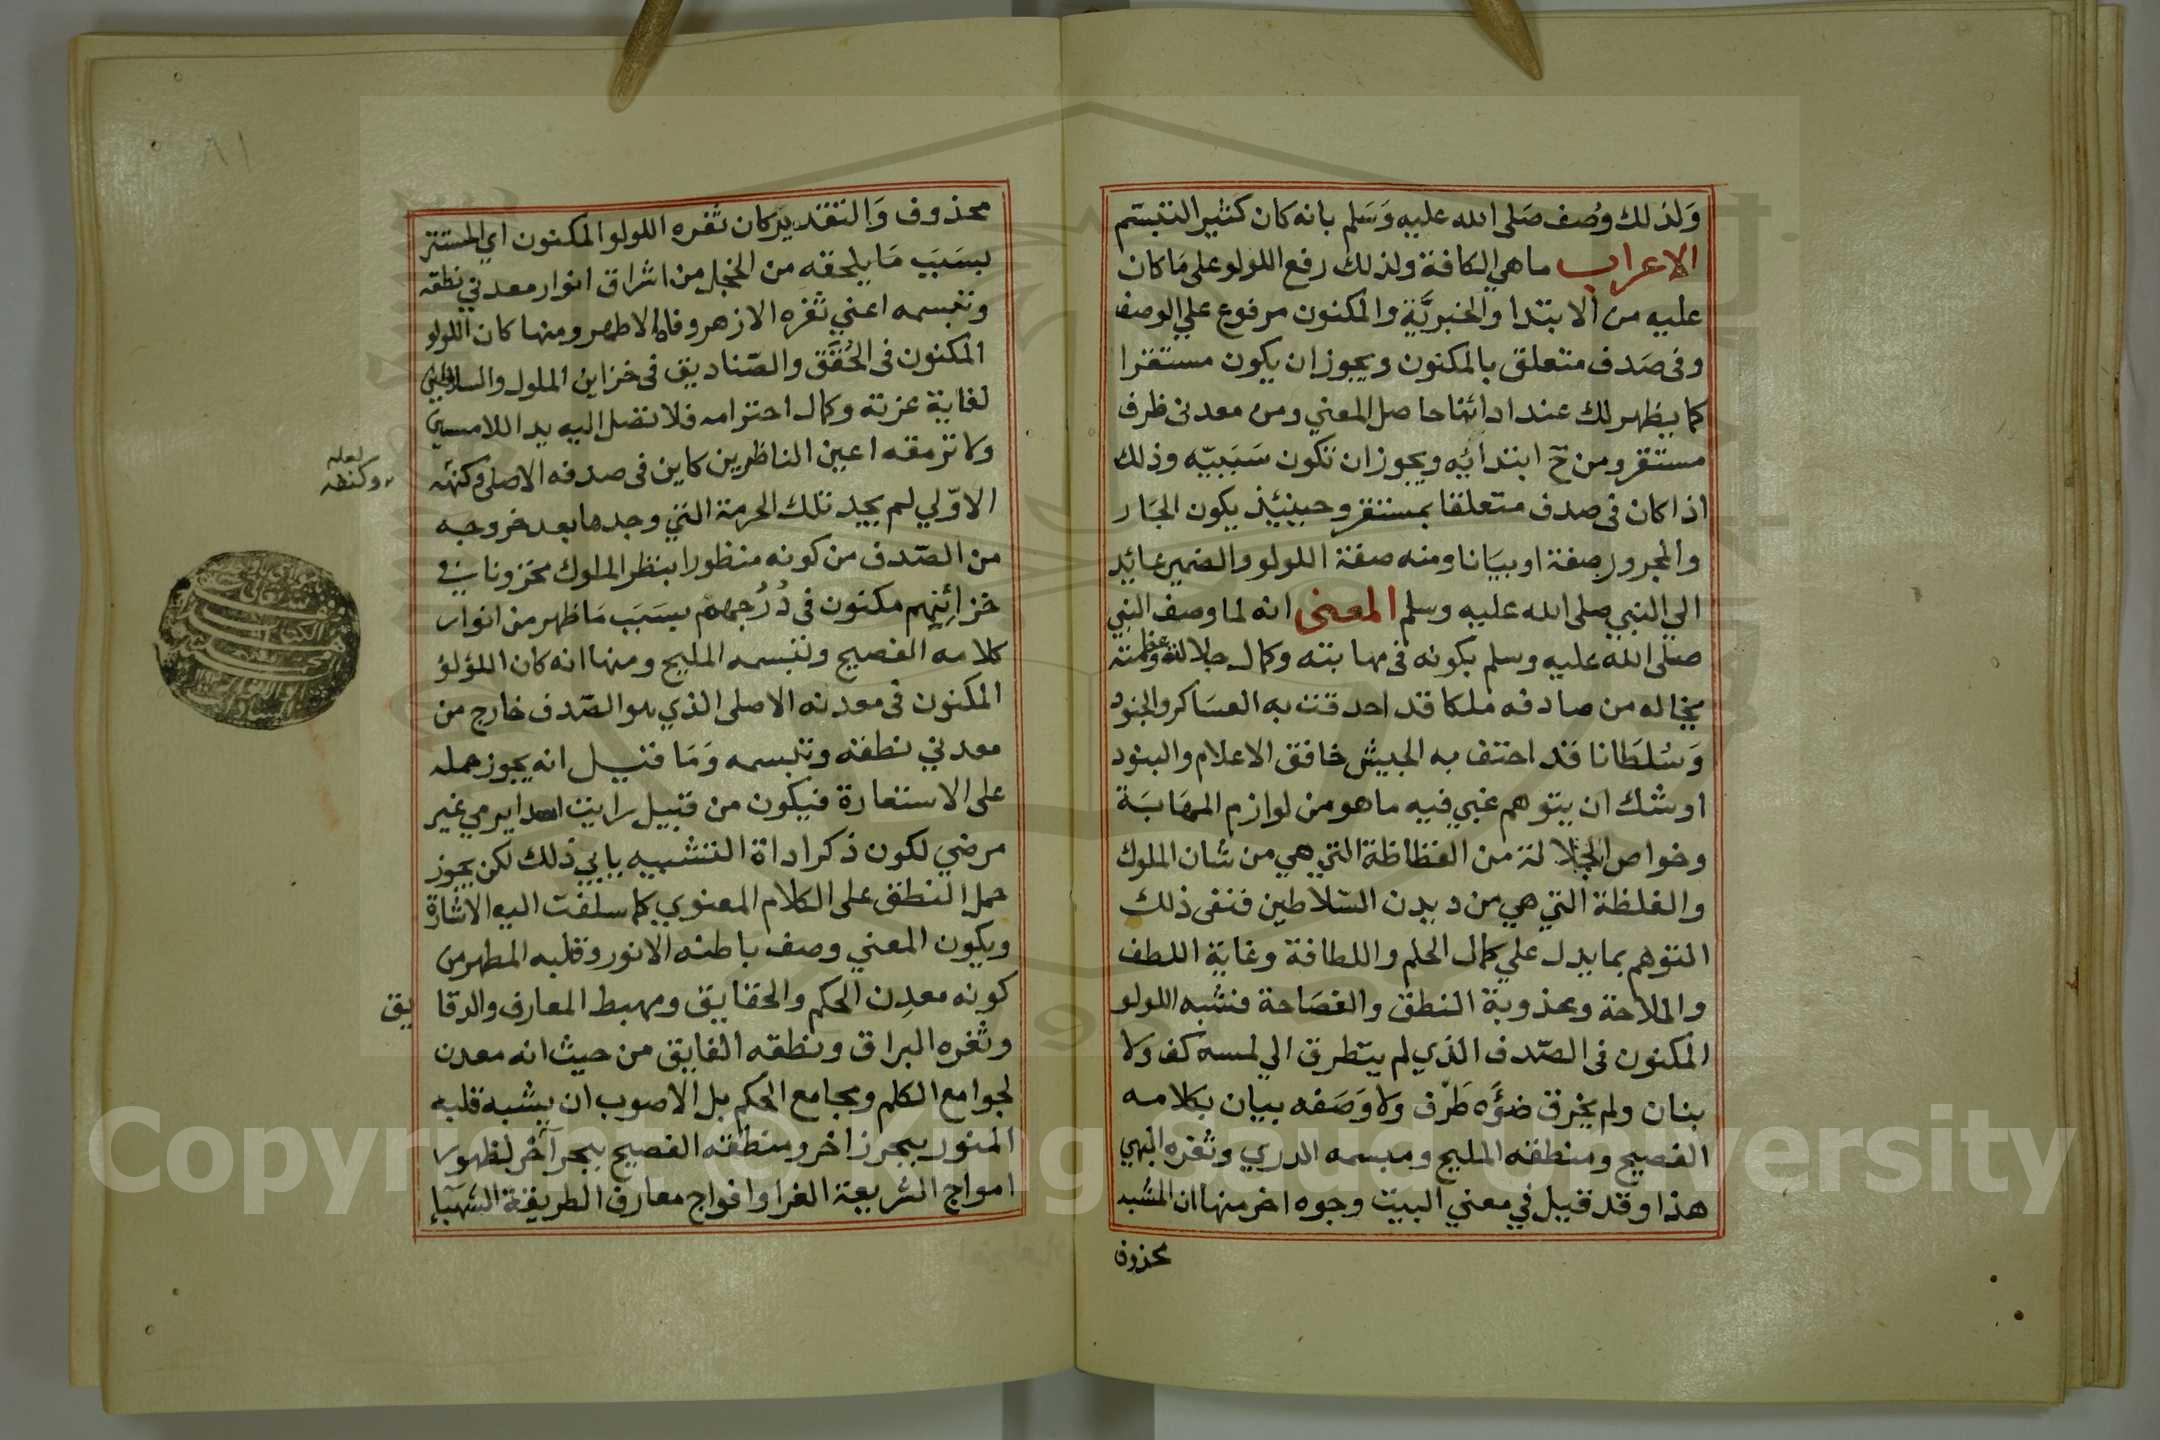 ولذلك وُصف صَلى الله عليه وَسَلم بانه كان كثير التبسّم
الاعراب ما هي الكافة ولذلك رفع اللولو على مَا كان
عليه من الابتدا والخبريَّة والمكنون مرفوع علي الوصف
وفى صَدف متعلق بالمكنون ويجوز ان يكون مستقرا
كما يظهر لك عند ادائنا حاصل المعني ومن معدنى ظرف
مستقر ومن ح ابتدائيه ويجوز ان تكون سَبَبيّه وذلك
اذا كان فى صدف متعلقا بمستقر وحينئذ يكون الجَار
والمجرور صفة او بيَانا ومنه صفة اللولو والضمير عائد
الي النبي صلى الله عليه وسلم المعنى انه لما وصف النبي
صَلى الله عليه وسلم بكونه فى مهابته وكمال جلالته وعظمته
يخاله من صادفه ملكا قد احدقت به العسَاكر والجنود
وَسُلطَانا قد احتف به الجيش خافق الاعلام والبنود
اوشك ان يتوهم غبي فيه ما هو من لوازم المهَابَة
وخواص الجلالة من الفظاظة التي هي من شان الملوك
والغلظة التي هي من ديدن السّلاطين فنفى ذلك
التوهم بما يدل علي كمال الحلم واللطافة وغاية اللطف
والملاحة وعذوبة النطق والفصَاحة فشبه اللولو
المكنون فى الصّدف الذي لم يتطرق الي لمسه كف ولا
بنان ولم يخرق ضوَّه طَرْف ولا وَصَفه بيان بكلامه
الفصيح ومنطقه المليح ومبسمه الدري وثغره البهي
هذا وقد قيل في معني البيت وجوه اخر منها ان المشبه
محذوف
محذوف وَالتقدير كان ثغره اللولو المكنون اي المستتر
بسَبَب مَا يلحقه من الخجل من اشراق انوار معدني نطقه
وتبسمه اعني ثغره الازهر وفاه الاطهر ومنها كان اللولو
المكنون فى الحُقَّق والصّناديق فى خزاين الملوك والسلاطين
لغاية عزته وكمال احترامه فلا تصل اليه يد اللامسين
ولا ترمقه اعين الناظرين كاين فى صدفه الاصلى وكنته
لعله
وكنفه
الاوّلي لم يجد تلك الحرمة التي وجدها بعد خروجه
من الصّدف من كونه منظورا بنظر الملوك مخزونا في
خزائنهم مكنون فى دُرْجهم بسَبَب مَا ظهر من انوار
كلامه الفصيح وتبسمه المليح ومنها انه كان اللؤلؤ
المكنون فى معدنه الاصلى الذي هو الصّدف خارج من
معدني نطقه وتبسمه وَمَا قيل انه يجوز حمله
على الاستعارة فيكون من قبيل رايت اسدا يرمي غير
مرضي لكون ذكر اداة التشبيه يابي ذلك لكن يجوز
حمل النطق على الكلام المعنوي كما سلفت اليه الاشارة
ويكون المعني وصف باطنه الانور وقلبه المطهر من
كونه معدِن الحكم والحقايق ومهبط المعارف والدقا يق
وثغره البراق ونطقه الفايق من حيث انه معدن
لجوامع الكلم ومجامع الحكم بل الاصوب ان يشبه قلبه
المنور ببحر زاخر ومنطقه الفصيح ببحر آخر لظهور
امواج الشريعة الغرا وافواج معارف الطريقة الشهبآ
Copyright © King Saud University